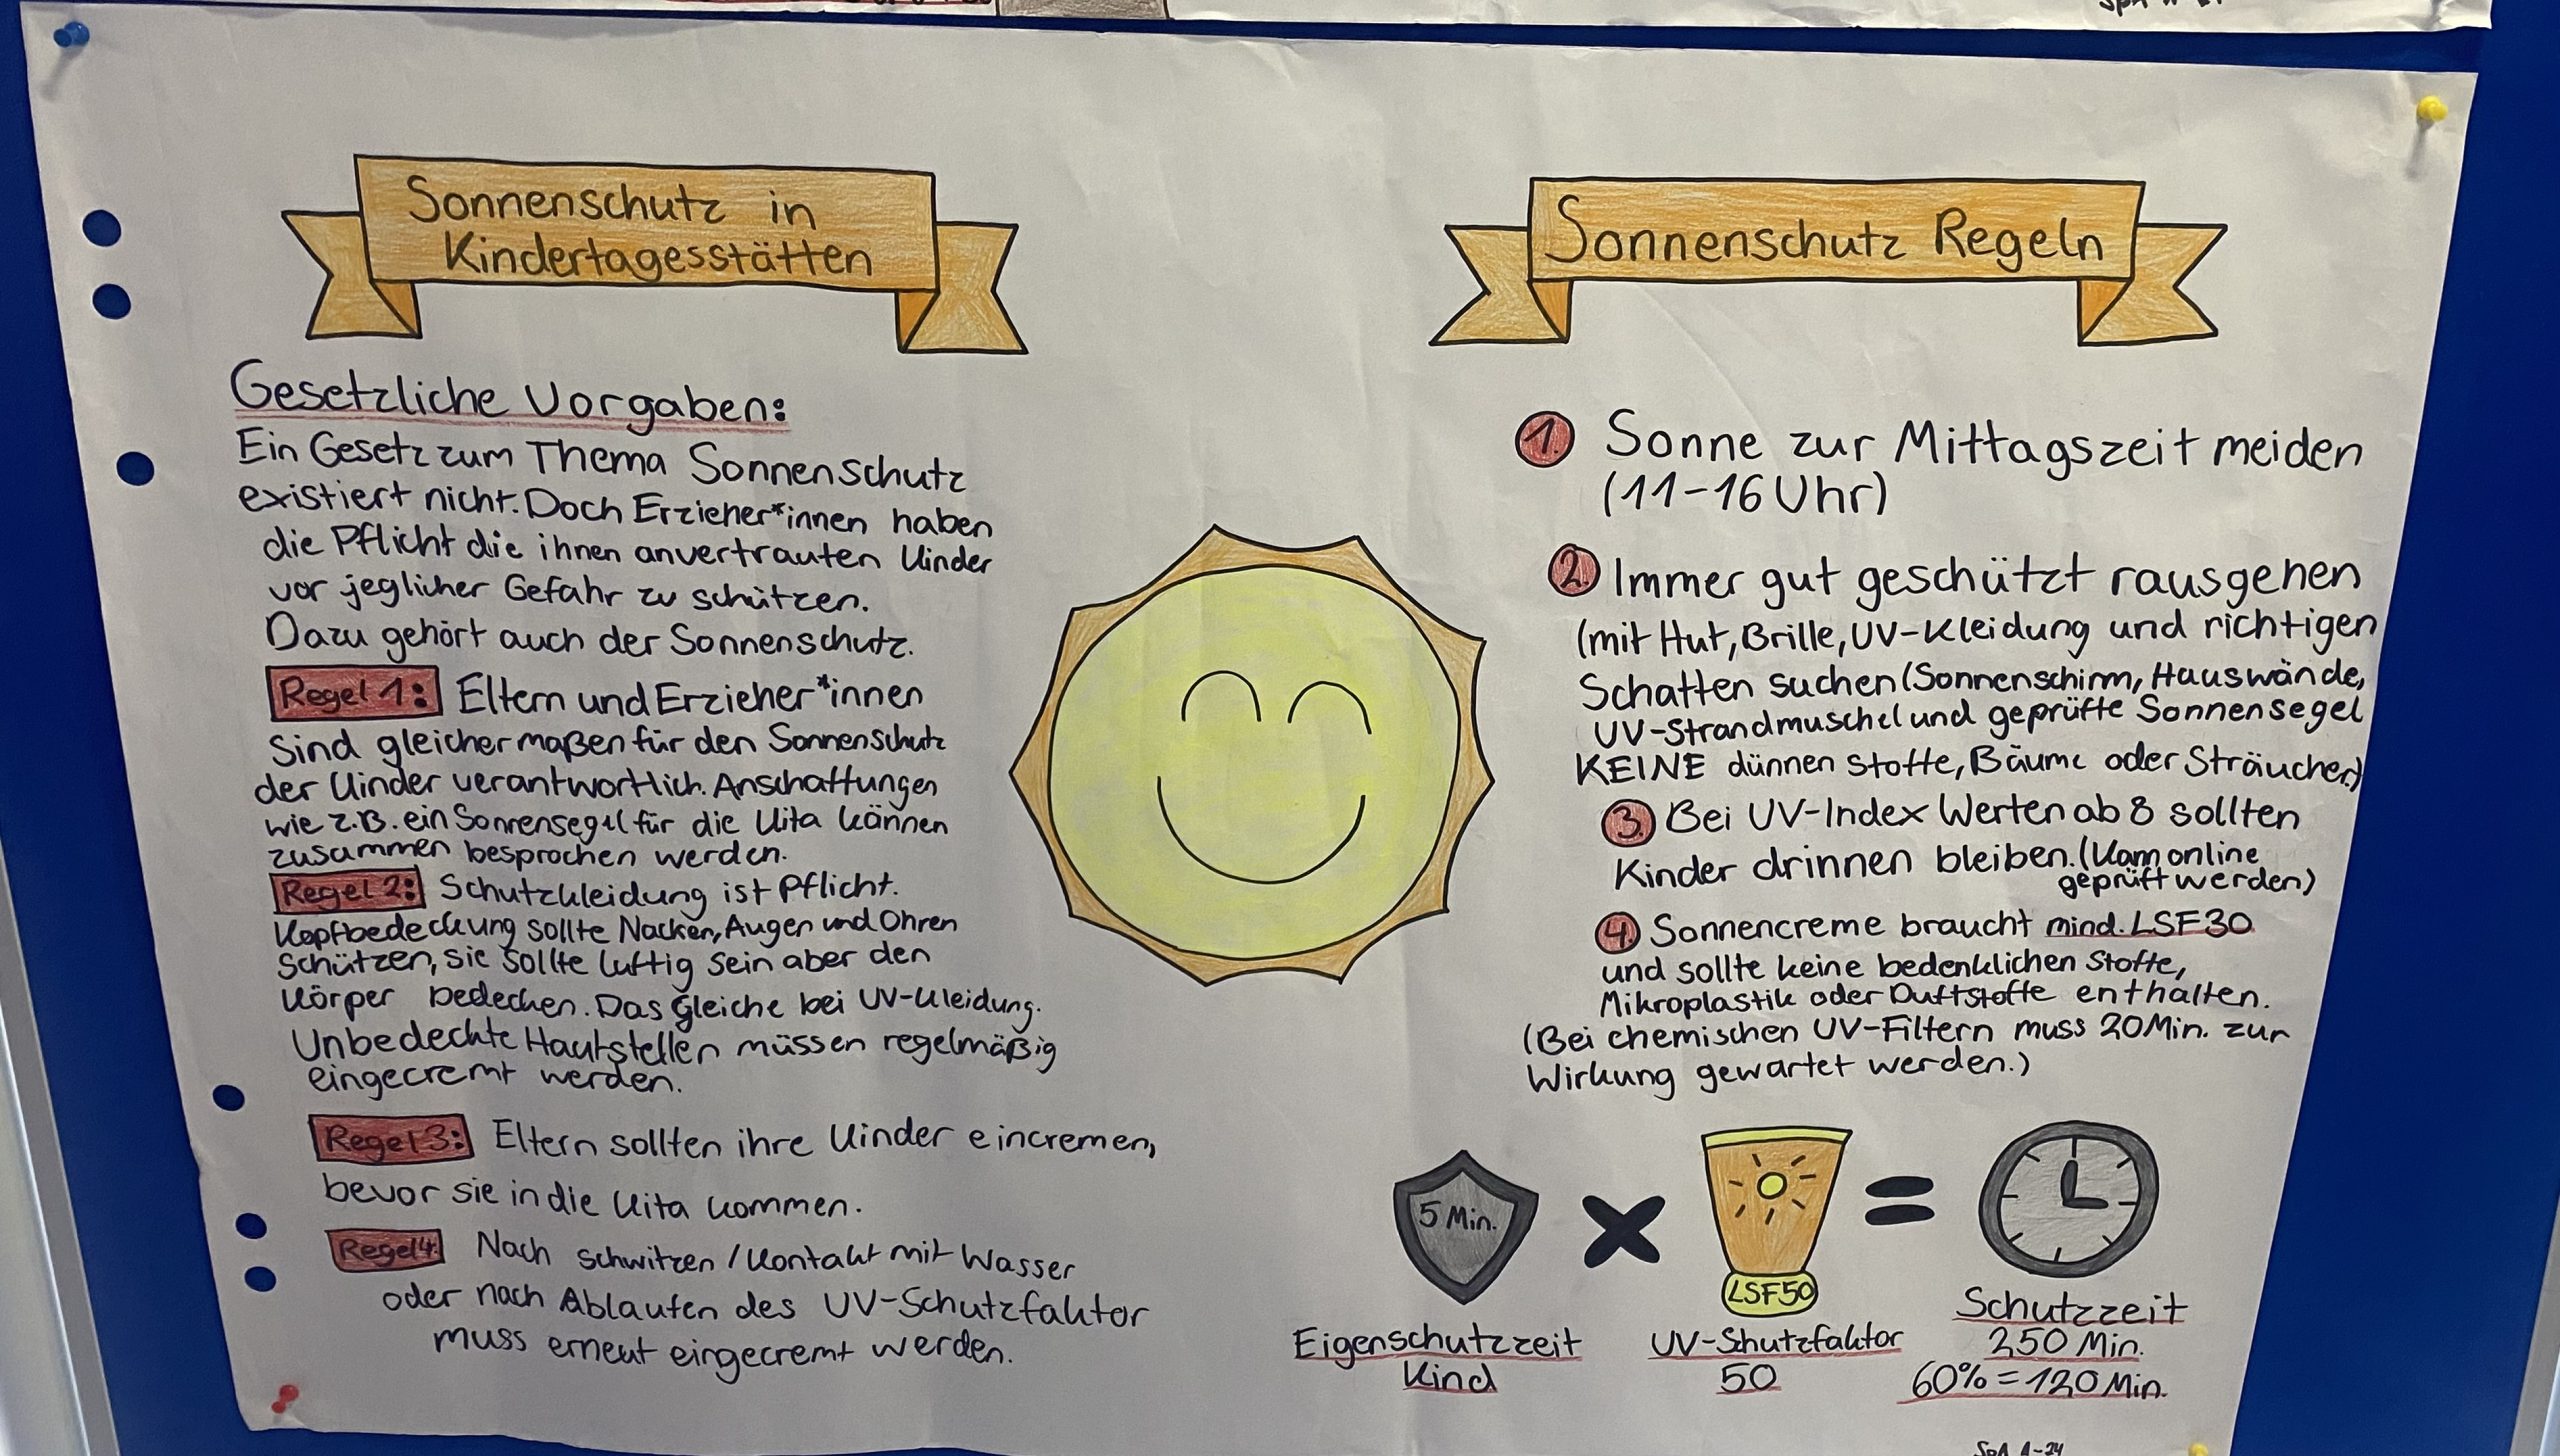 Sonnenschutz in
Kindertagesstätten
Gesetzliche Vorgaben:
Ein Gesetz zum Thema Sonnenschutz
existiert nicht. Doch Erzieher*innen haben
die Pflicht die ihnen anvertrauten Kinder
vor jeglicher Gefahr zu schützen.
Dazu gehört auch der Sonnenschutz.
Regel 1: Eltern und Erzieher*innen
sind gleichermaßen für den Sonnenschutz
der Kinder verantwortlich. Anschaffungen
wie z.B. ein Sonnensegel für die Kita können
zusammen besprochen werden.
Regel 2: Schutzkleidung ist Pflicht.
Kopfbedeckung sollte Nacken, Augen und Ohren
schützen, sie sollte luftig sein aber den
Körper bedecken. Das Gleiche bei UV-Kleidung.
Unbedeckte Hautstellen müssen regelmäßig
eingecremt werden.
Regel 3: Eltern sollten ihre Kinder eincremen,
bevor sie in die Kita kommen.
Regel 4: Nach schwitzen / Kontakt mit Wasser
oder nach Ablaufen des UV-Schutzfaktor
muss erneut eingecremt werden.
Sonnenschutz Regeln
1. Sonne zur Mittagszeit meiden
(11-16 Uhr)
2. Immer gut geschützt rausgehen
(mit Hut, Brille, UV-Kleidung und richtigen
Schatten suchen (Sonnenschirm, Hauswände,
UV-Strandmuschel und geprüfte Sonnensegel
KEINE dünnen Stoffe, Bäume oder Sträucher)
3. Bei UV-Index Werten ab 8 sollten
Kinder drinnen bleiben. (Kann online
geprüft werden)
4. Sonnencreme braucht mind. LSF30
und sollte keine bedenklichen Stoffe,
Mikroplastik oder Duftstoffe enthalten.
(Bei chemischen UV-Filtern muss 20 Min. zur
Wirkung gewartet werden.)
5 Min.
LSF50
Eigenschutzzeit
Kind
UV-Shutzfaktor
50
Schutzzeit
250 Min.
60% = 120 Min.
SpA A-24